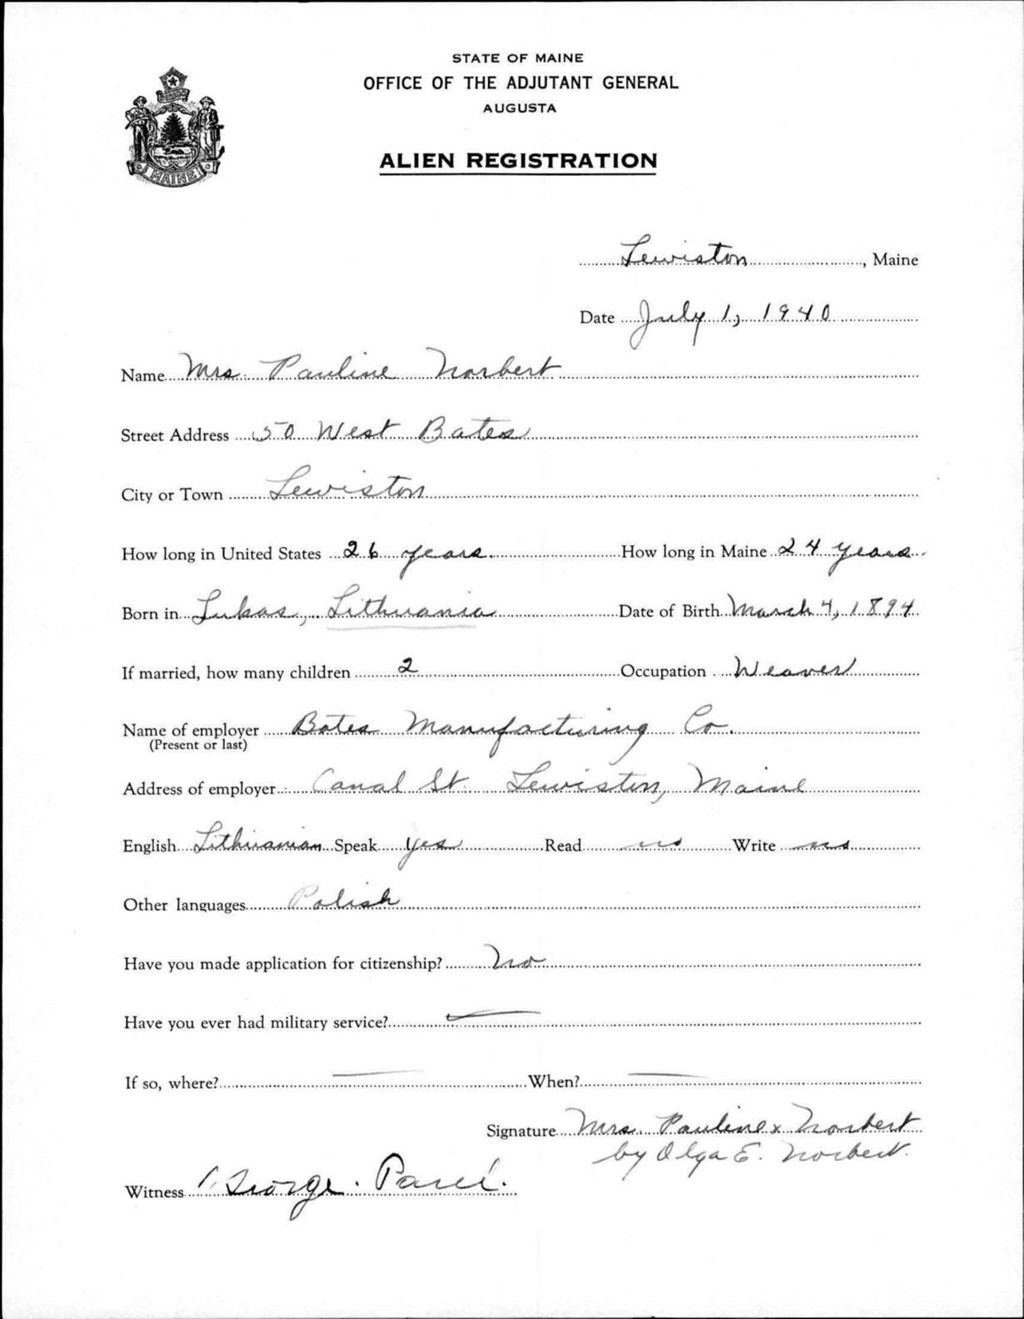 STATE OF MAINE
OFFICE OF THE ADJUTANT GENERAL
AUGUSTA
ALIEN REGISTRATION
MAINE
Lewiston, Maine
Date July 1, 1940
Name Mrs. Pauline Norbert
Street Address 50 West Bates
City or Town Lewiston
How long in United States 26 years. How long in Maine 24 years
Born in Lukas, Lithuania Date of Birth March 4, 1894
If married, how many children 2 Occupation Weaver
Name of employer Bates Manufacturing Co.
(Present or last)
Address of employer Canal St. Lewiston, Maine
English Lithuanian Speak yes Read no Write no
Other languages Polish
Have you made application for citizenship? No
Have you ever had military service? —
If so, where? — When? —
Signature Mrs. Pauline x Norbert
by Olga E. Norbert.
Witness George